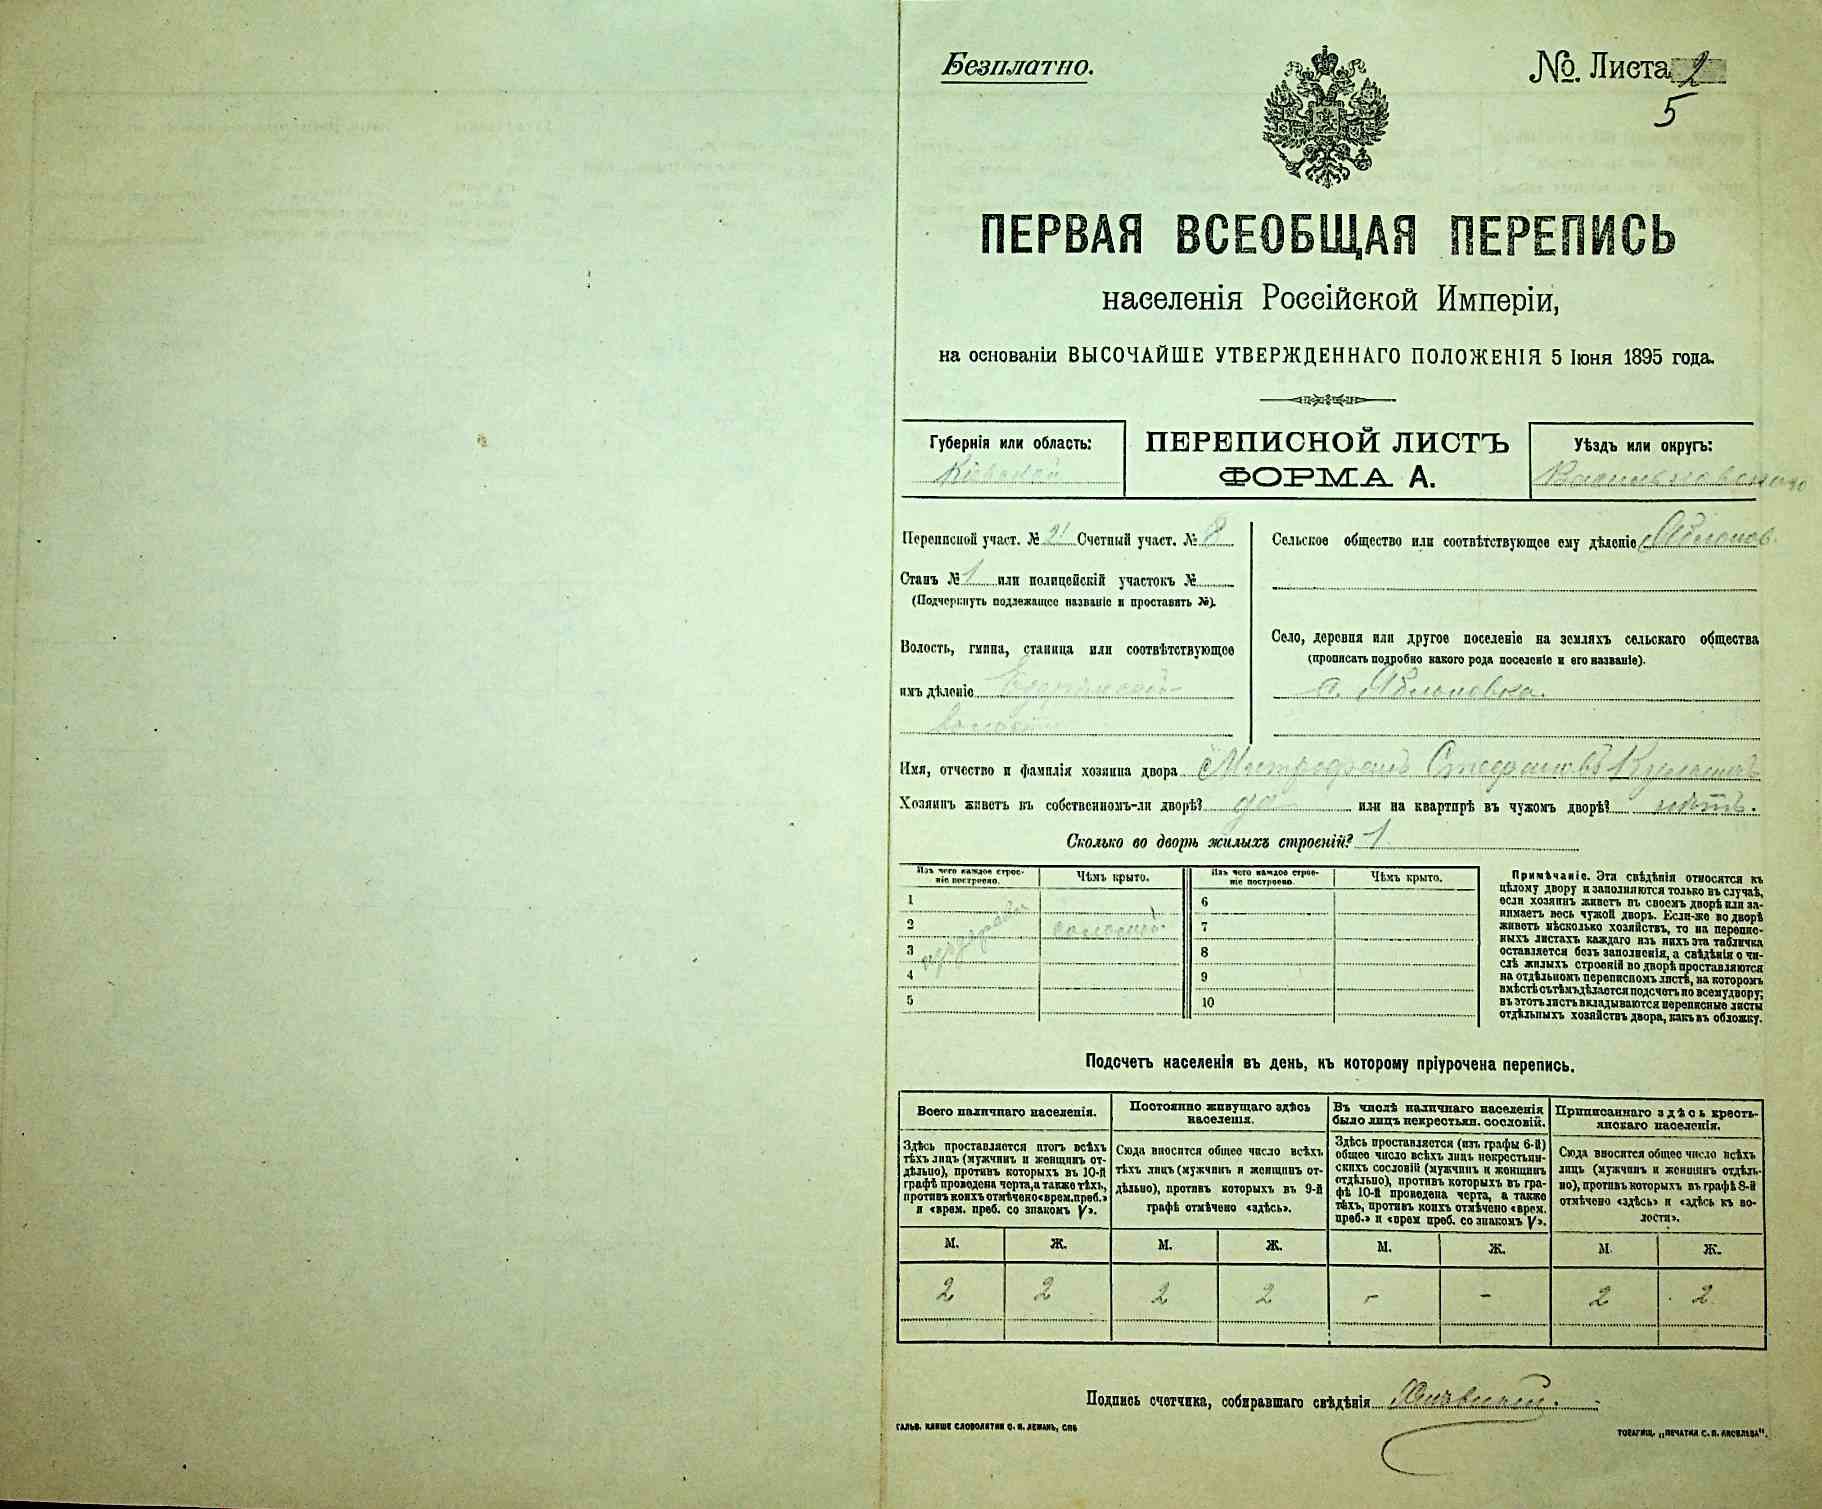 Безплатно.
№. Листа 2
5
ПЕРВАЯ ВСЕОБЩАЯ ПЕРЕПИСЬ
населенія Россійской Имперіи,
на основаніи ВЫСОЧАЙШЕ УТВЕРЖДЕННАГО ПОЛОЖЕНІЯ 5 Іюня 1895 года.
Губернія или область:
Кіевской
ПЕРЕПИСНОЙ ЛИСТЪ
ФОРМА А.
Уѣздъ или округъ:
Васильковскаго
Переписной участ. № Счетный участ. № 8
Станъ № 1 или полицейскій участокъ №
(Подчеркнуть подлежащее названіе и проставить №).
Волость, гмина, станица или соотвѣтствующее
имъ дѣленіе
Сельское общество или соотвѣтствующее ему дѣленіе Яблонов.
Село, деревня или другое поселеніе на земляхъ сельскаго общества
(прописать подробно какого рода поселеніе и его названіе).
с. Яблоновка.
Имя, отчество и фамилія хозяина двора Митрофанъ
Хозяинъ живетъ въ собственномъ-ли дворѣ? да или на квартирѣ въ чужомъ дворѣ? нѣтъ.
Сколько во дворѣ жилыхъ строеній? 1
Изъ чего каждое строе-
ніе построено.
Чѣмъ крыто.
Изъ чего каждое строе-
ніе построено.
Чѣмъ крыто.
1
6
2 соломой.
7
3
8
4
9
5
10
Примѣчаніе. Эти свѣдѣнія относятся къ
цѣлому двору и заполняются только въ случаѣ,
если хозяинъ живетъ въ своемъ дворѣ или за-
нимаетъ весь чужой дворъ. Если-же во дворѣ
живетъ нѣсколько хозяйствъ, то на перепис-
ныхъ листахъ каждаго изъ нихъ эта табличка
оставляется безъ заполненія, а свѣдѣнія о чи-
слѣ жилыхъ строеній во дворѣ проставляются
на отдѣльномъ переписномъ листѣ, на которомъ
вмѣстѣ съ тѣмъ дѣлается подсчетъ по всему двору;
въ этотъ листъ вкладываются переписные листы
отдѣльныхъ хозяйствъ двора, какъ въ обложку.
Подсчетъ населенія въ день, къ которому пріурочена перепись.
Всего наличнаго населенія.
Здѣсь проставляется итогъ всѣхъ
тѣхъ лицъ (мужчинъ и женщинъ от-
дѣльно), противъ которыхъ въ 10-й
графѣ проведена черта, а также тѣхъ,
противъ коихъ отмѣчено «врем. преб.»
и «врем. преб. со знакомъ V».
Постоянно живущаго здѣсь
населенія.
Сюда вносится общее число всѣхъ
тѣхъ лицъ (мужчинъ и женщинъ от-
дѣльно), противъ которыхъ въ 9-й
графѣ отмѣчено «здѣсь».
Въ числѣ наличнаго населенія
было лицъ некрестьян. сословій.
Здѣсь проставляется (изъ графы 6-й)
общее число всѣхъ лицъ некрестьян-
скихъ сословій (мужчинъ и женщинъ
отдѣльно), противъ которыхъ въ гра-
фѣ 10-й проведена черта, а также
тѣхъ, противъ коихъ отмѣчено «врем.
преб.» и «врем преб. со знакомъ V».
Приписаннаго здѣсь кресть-
янскаго населенія.
Сюда вносится общее число всѣхъ
лицъ (мужчинъ и женщинъ отдѣль-
но), противъ которыхъ въ графѣ 8-й
отмѣчено «здѣсь» и «здѣсь въ во-
лости».
М. Ж. М. Ж. М. Ж. М. Ж.
2 2 2 2 - - 2 2
Подпись счетчика, собиравшаго свѣдѣнія
ГАЛЬВ. КЛИШЕ СЛОВОЛИТНИ О. И. ЛЕМАНЪ, СПБ
ТОВАРИЩ. „ПЕЧАТНЯ С. П. ЯКОВЛЕВА".